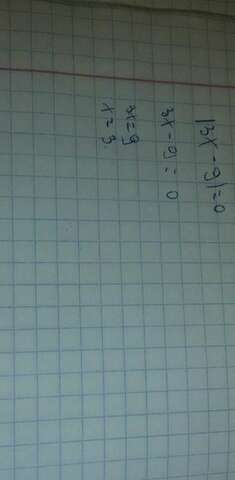 |3x - 9|=0
3x - 9 = 0
3x=9
x=3.